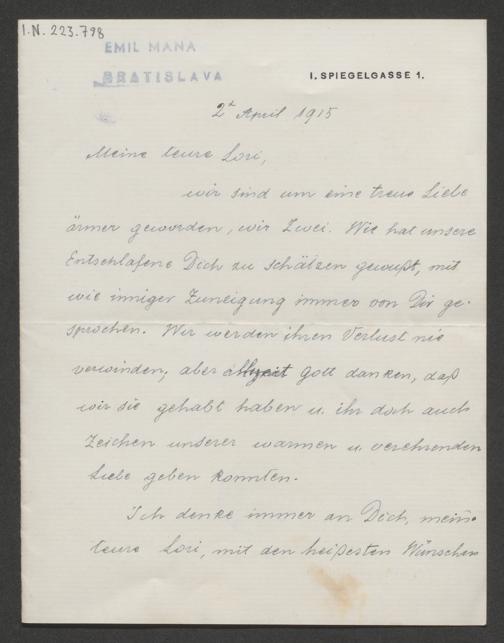 I.N. 223.798
EMIL MANA
BRATISLAVA
I. SPIEGELGASSE 1.
2t April 1915
Meine teure Lori,
wir sind um eine treue Liebe
ärmer geworden, wir Zwei. Wie hat unsere
Entschlafene Dich zu schätzen gewußt, mit
wie inniger Zuneigung immer von Dir ge-
sprochen. Wir werden ihren Verlust nie
verwinden, aber allzeit Gott danken, daß
wir sie gehabt haben u. ihr doch auch
Zeichen unserer warmen u. verehrenden
Liebe geben konnten.
Ich denke immer an Dich, meine
teure Lori, mit den heißesten Wünschen